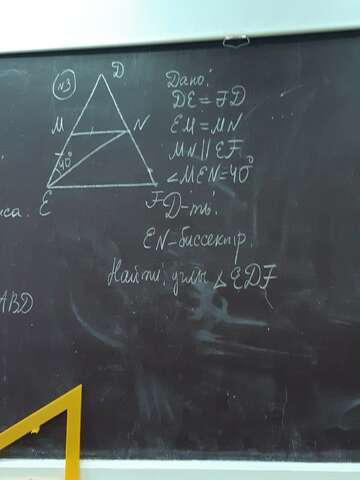 №3
D
Дано:
DE = FD
M
N
EM = MN
MN || EF
40°
∠MEN = 40°
E
F
Д-ть:
иса.
EN - биссектр.
Найти: углы △ EDF
ABD